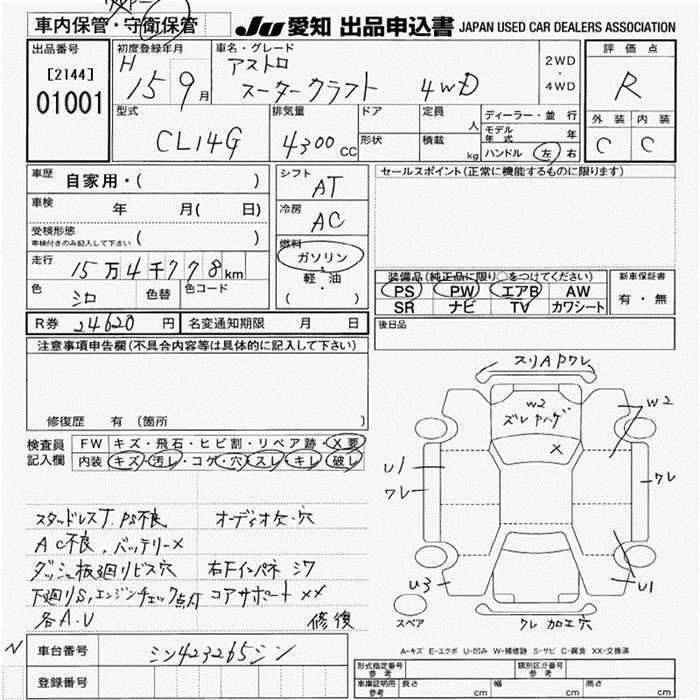 車内保管・守衛保管
JU 愛知 出品申込書 JAPAN USED CAR DEALERS ASSOCIATION
出品番号
[2144]
01001
初度登録年月
H 15 9 月
車名・グレード
アストロ
スータークラフト 4WD
2WD
・
4WD
評価点
R
外装 内装
C C
型式
CL14G
排気量
4300 CC
ドア
形状
定員
人
積載
kg
ディーラー・並行
モデル年式 年
ハンドル 左 右
車歴
自家用・( )
車検
年 月( 日)
受検形態
車検付きのみ記入して下さい ( )
走行
15万4千778km
色
シロ
色替
色コード
シフト
AT
冷房
AC
燃料
ガソリン
軽・油
( ・ )
セールスポイント(正常に機能するものに限ります)
装備品(純正品に限り○をつけてください)
PS PW エアB AW
SR ナビ TV カワシート
新車保証書
有・無
R券 24620 円
名変通知期限 月 日
後日品
注意事項申告欄(不具合内容等は具体的に記入して下さい)
修復歴 有 〔箇所 〕
検査員
記入欄
FW キズ・飛石・ヒビ割・リペア跡・X要
内装 キズ・汚レ・コゲ・穴・スレ・キレ・破レ
スタッドレスT PS不良 オーディオ欠・穴
AC不良、バッテリーX
ダッシュ板廻りビス穴 右Fインパネ シワ
下廻りS,エンジンチェック点灯 コアサポート XX
各A.U 修復
スリAPワレ
W2
ズレ ハゲ
X
W2
U1
ワレ
ワレ
U3
U1
スペア
ワレ 加工穴
A-キズ E-エクボ U-凹み W-補修跡 S-サビ C-腐食 XX-交換済
N
車台番号
シン423265シン
登録番号
形式指定番号
参考
類別区分番号
参考
車庫証明用
参考
長さ cm 幅 cm 高さ cm